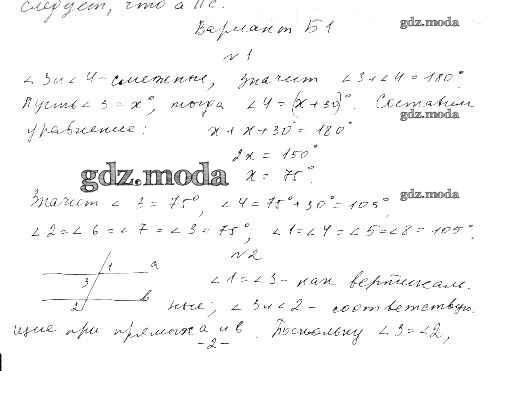 следует, что a || c.
Вариант Б1
gdz.moda
№1
∠3 и ∠4 - смежные, значит ∠3+∠4=180°.
Пусть ∠3 = x°, тогда ∠4=(x+30)°. Составим
gdz.moda
уравнение: x+x+30°=180°
2x = 150°
gdz.moda x = 75°.
Значит ∠3=75°, ∠4=75°+30°=105°,
gdz.moda
∠2=∠6=∠7=∠3=75°; ∠1=∠4=∠5=∠8=105°.
№2
1 a
3
b
2
∠1=∠3 - как вертикаль-
ные; ∠3 и ∠2 - соответствую-
щие при прямых a и b. Поскольку ∠3=∠2,
-2-